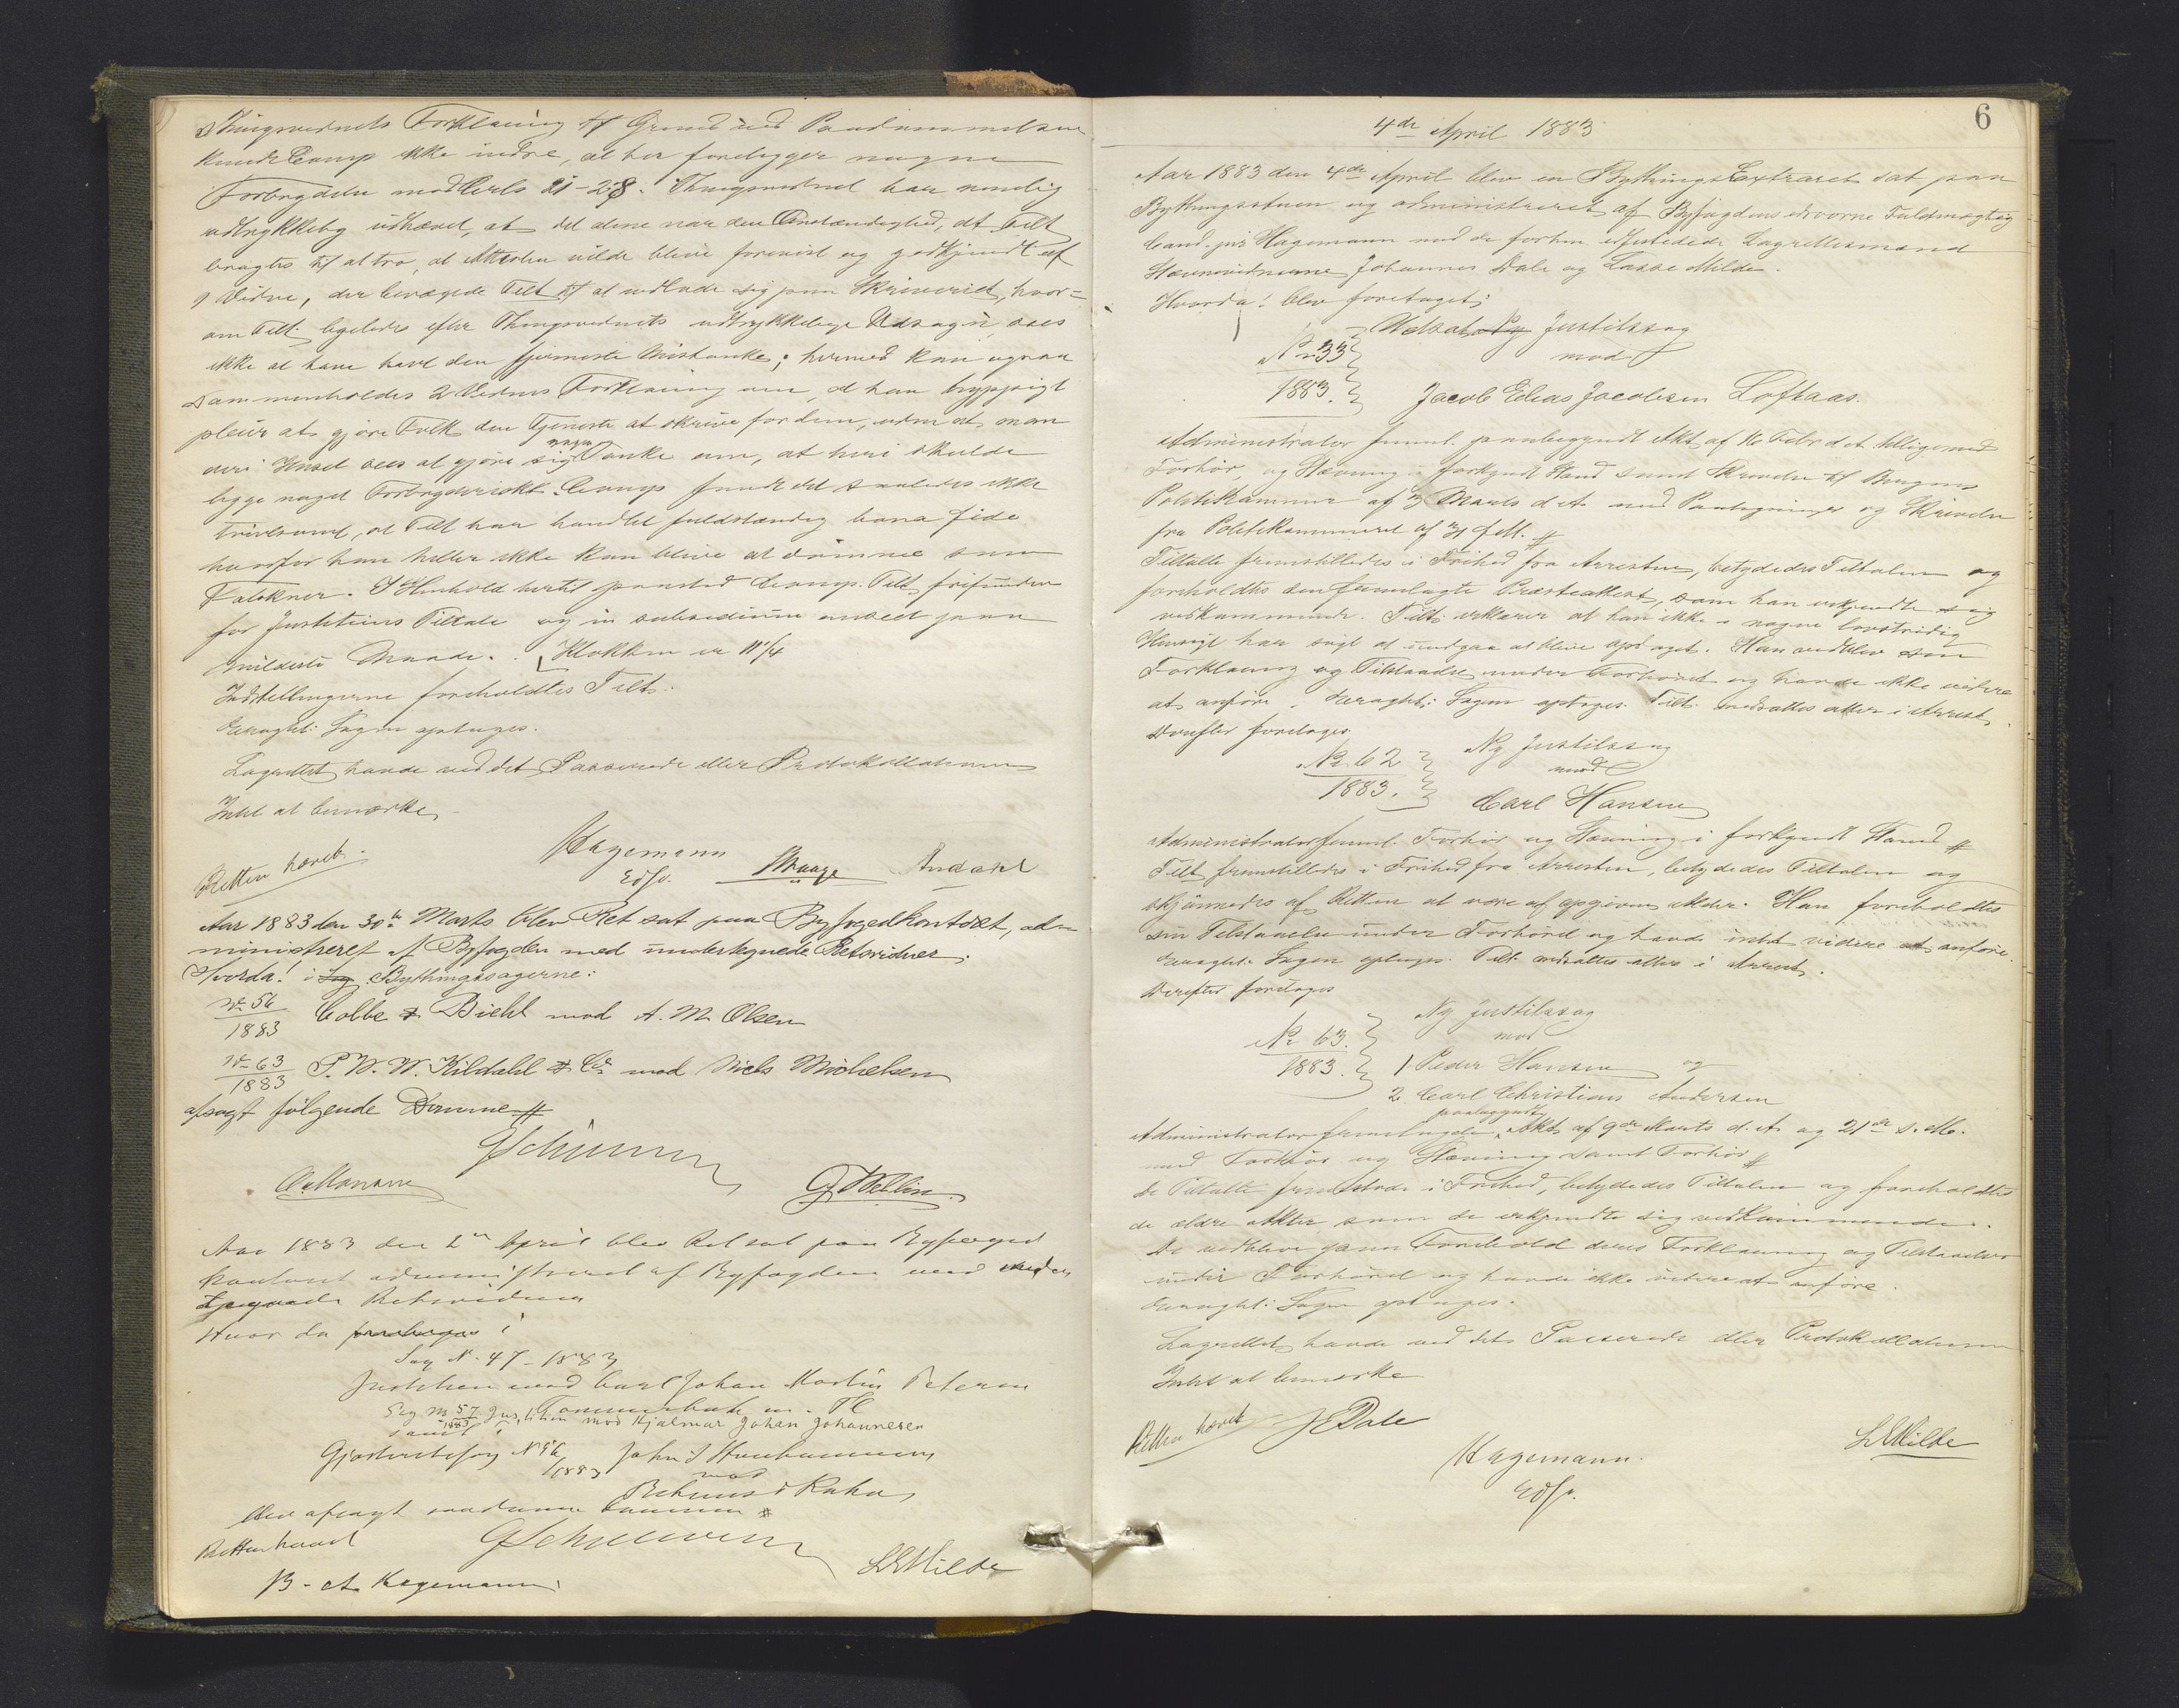 Thingsvidnets Forklaring til Grund ved Paadømmelsen
kunde Comp ikke indse, at her foreligger nogen
Forbrydelse mod Crls 21-28. Thingsvidnet har nemlig
udtrykkelig udhævet, at det alene var den Omstændighed, at Tilt
bragtes til at tro, at Attesten vilde blive forevist og godkjendt af
1 Vidne, der bevægede Tilt til at indlade sig paa Skriveriet, hvor=
om Tilt. ligeledes efter Thingsvidnets udtrykkelige Udsagn sees
ikke at have havt den fjerneste Mistanke; hermed kan ogsaa
sammenholdes 2 Vidnes Forklaring om, at han hyppigt
pleier at gjøre Folk den Tjeneste at skrive for dem, uden at man
deri sees at gjøre sig nogen Tanke om, at heri skulde
ligge noget Forbryderiskt. Comp fandt det saaledes ikke
tvivlsomt, at Tilt har handlet fuldstændig bona fide
hvorfor han heller ikke kan blive at dømme som
Falskner. I Henhold hertil paastod Comp. Tilt frifunden
for Justitiens Tiltale og in subsidium anseet paa
mildeste Maade. Klokken er 11 1/4
Indstillingerne foreholdtes Tilt.
Eragtet: Sagen optages.
Lagrettet havde ved det Passerede eller Protokollationen
Intet at bemærke
Retten hævet.
Hagemann
Edsv.
Aar 1883 den 30te Marts blev Ret sat paa Byfogedkontoret, ad-
ministreret af Byfogden med undertegnede Retsvidner.
Hvorda! i Bythingssagerne:
No 56
1883 Colbe & Diehl mod A. M. Olsen
No 63
1883 P. W. W. Kildahl & Co mod Niels Michelsen
afsagt følgende Domme #
Aar 1883 den 2den April blev Ret sat paa Byfoged
kontoret administreret af Byfogden med under
tegnede Retsvidner
Hvor da foretages i
Sag No 47 - 1883
Justitien mod Carl Johan Martin Petersen
Sag No 57/1883 Justitien mod Hjalmar Johan Johannesen
samt i
Gjæsteretssag No 56/1883 John S
mod
blev afsagt saadanne Domme #
Retten hævet
B. A. Hagemann
L Milde
6
4de April 1883
Aar 1883 den 4de April blev en Bythings Extraret sat paa
Bythingsstuen og administreret af Byfogdens edsvorne Fuldmægtig
Cand. jur Hagemann med de forhen edfæstede Lagrettesmænd
Stævnevidnerne Johannes Dale og Lasse Milde.
Hvorda! blev foretaget:
Udsat Ny Justitssag
No 33
mod
1883.
Jacob Elias Jacobsen Loftaas.
Administrator freml. paabegyndt Akt af 16 Febr d A tilligemed
Forhør, og Stævning i forkyndt Stand samt Skrivelse til Bergens
Politikammer af 3 Marts d A med Paategninger og Skrivelse
fra Politikammeret af 31 f M. #
Tiltalte fremstilledes i Frihed fra Arresten, betydedes Tiltalen og
foreholdtes den fremlagte Præsteattest, som han erkjendte sig
vedkommende. Tilt. erklærer at han ikke i nogen lovstridig
Hensigt har søgt at undgaa at blive opdaget. Han vedblev sin
Forklaring og Tilstaaelse under Forhøret og havde ikke videre
at anføre. Eragtet: Sagen optages. Tilt. indsattes atter i Arrest.
Derefter foretages
No 62
1883.
Ny Justitssag
mod
Carl Hansen
Administrator freml. Forhør og Stævning i forkyndt Stand #
Tilt fremstilledes i Frihed fra Arresten, betydedes Tiltalen og
skjønnedes af Retten at være af opgiven Alder. Han foreholdtes
sin Tilstaaelse under Forhøret og havde intet videre at anføre.
Eragtet: Sagen optages. Tilt. indsattes atter i Arrest.
Derefter foretages
Ny Justitssag
No 63.
1883.
mod
1 Peder Hansen og
2. Carl Christian Andersen
Administrator fremlagde paabegyndt Akt af 9de Marts d. A. og 21de s. M.
med Forhør og Stævning samt Forhør #
De Tiltalte fremstode i Frihed, betydedes Tiltalen og foreholdtes
de ældre Akter som de erkjendte sig vedkommende.
De vedbleve paa Forehold deres Forklaring og Tilstaaelser
under Forhøret og havde ikke videre at anføre.
Eragtet: Sagen optages.
Lagrettet havde ved det Passerede eller Protokollationen
Intet at bemærke
Retten hævet
J E Dale
Hagemann.
Edsv.
L Milde